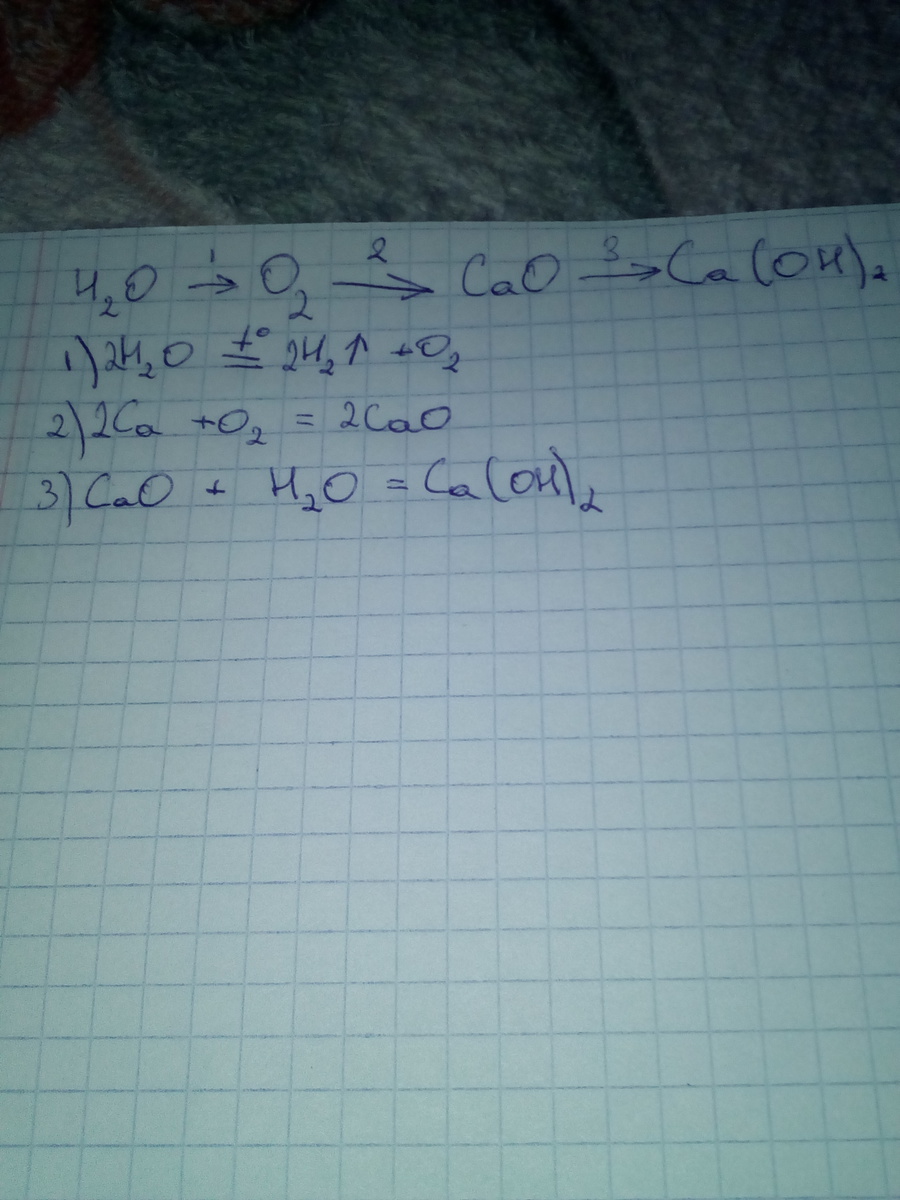 H₂O →¹ O₂ →² CaO →³ Ca(OH)₂
1) 2H₂O =^t° 2H₂↑ + O₂
2) 2Ca + O₂ = 2CaO
3) CaO + H₂O = Ca(OH)₂